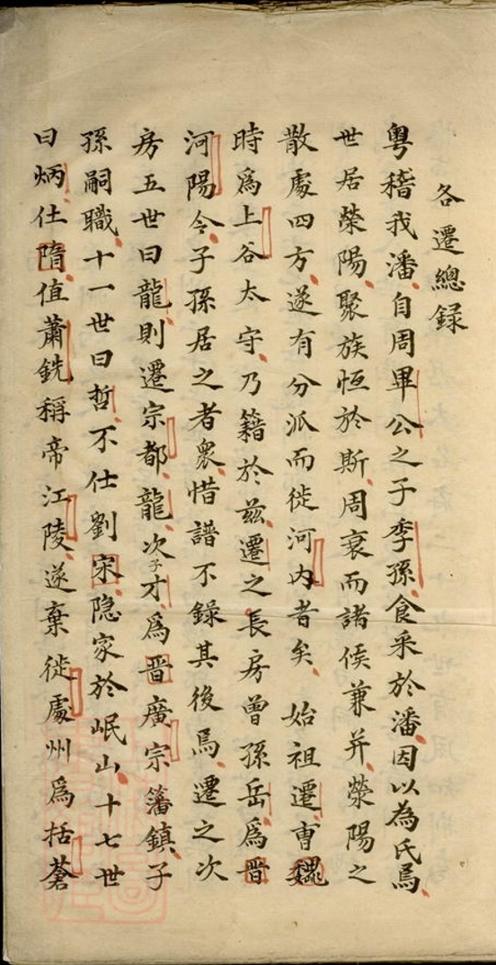 各遷總錄
粵稽我潘自周畢公之子季孫食采於潘因以為氏焉
世居榮陽聚族恆於斯周衰而諸侯兼并滎陽之
散處四方遂有分派而徙河内者矣始祖遷曹魏
時爲上谷太守乃籍於茲遷之長房曾孫岳爲晋
河陽令子孫居之者衆惜譜不錄其後焉遷之次
房五世曰龍則遷宗都龍次子才爲晋廣宗籓鎮子
孫嗣職十一世曰哲不仕劉宋隐家於岷山十七世
曰炳仕隋值蕭銑稱帝江陵遂棄徙處州爲括蒼